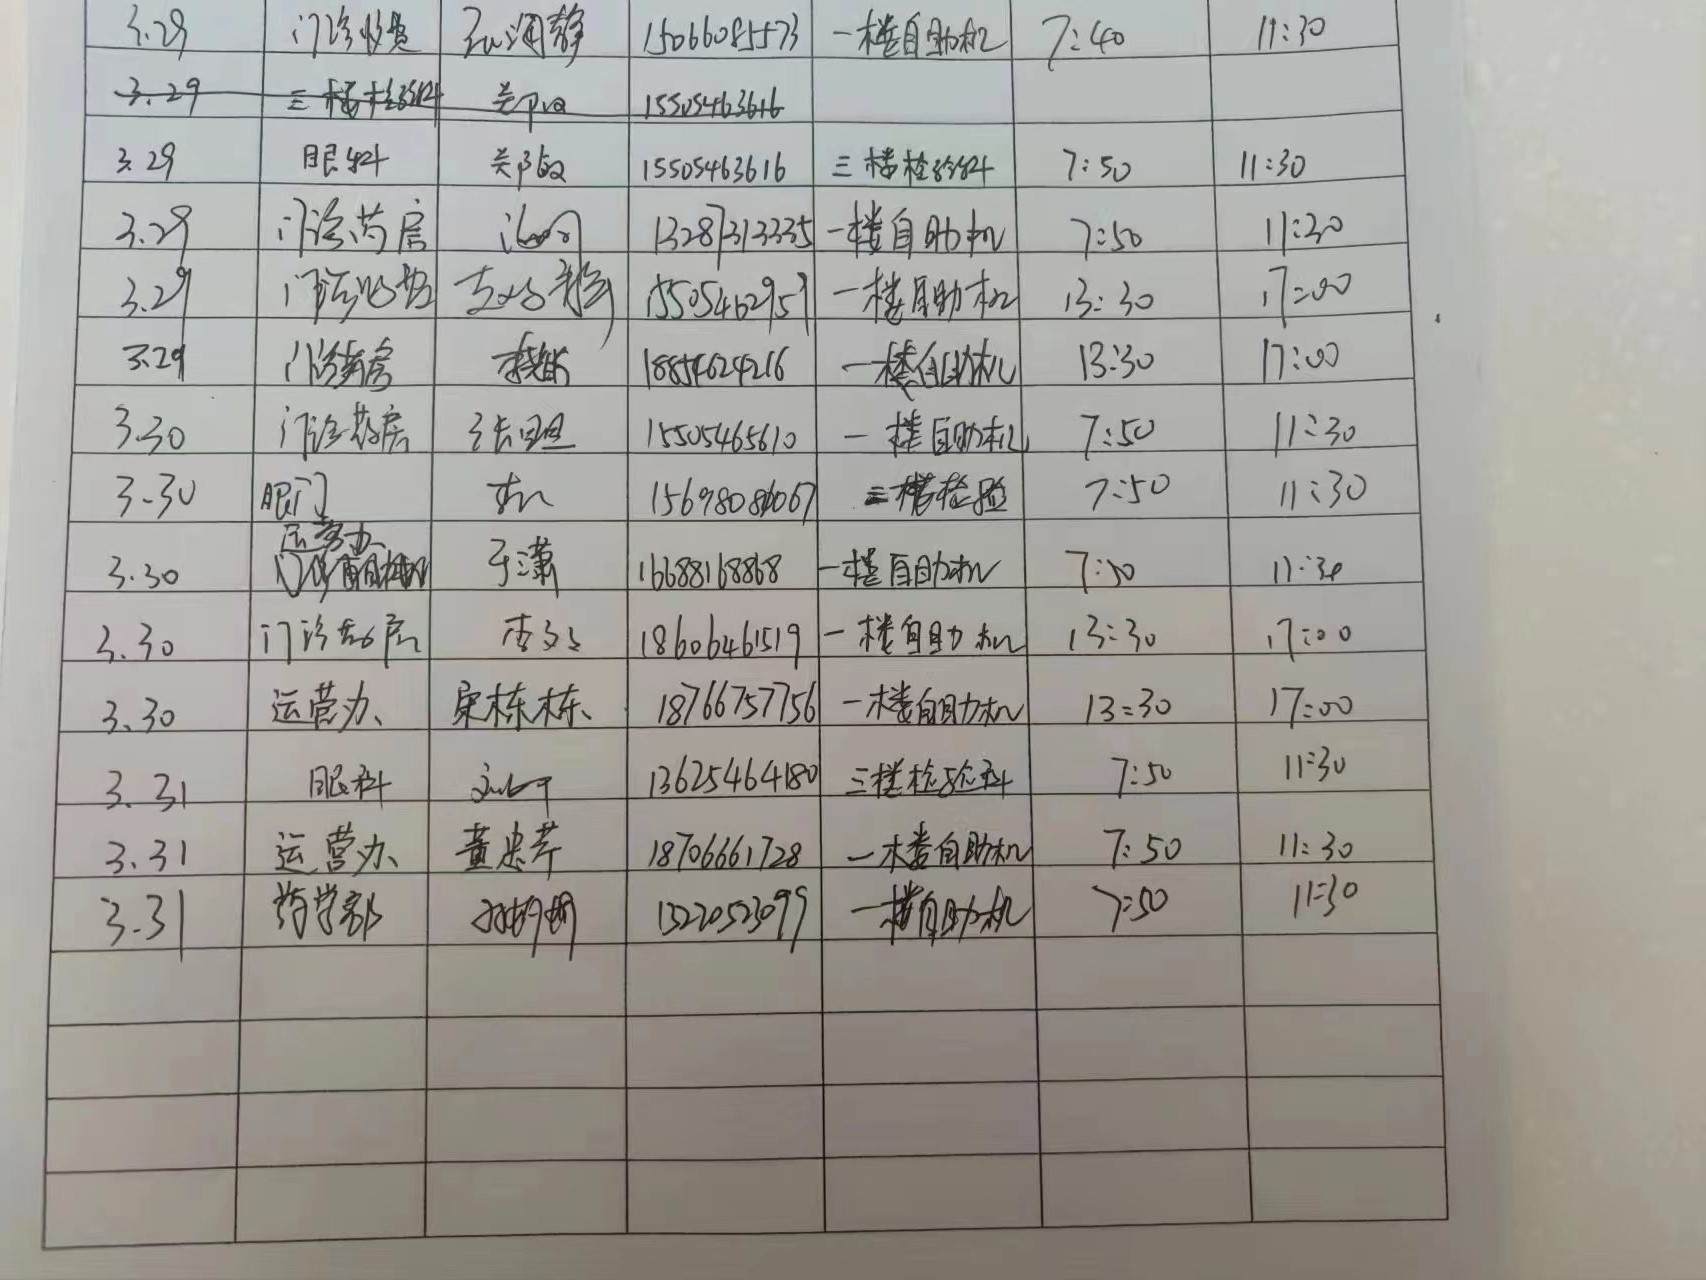 3.29 门诊收费 静 15066085573 一楼自助机 7:40 11:30
3.29 三楼检验科 关敏 15505463616
3.29 眼科 关敏 15505463616 三楼检验科 7:50 11:30
3.29 门诊药房 13287313335 一楼自助机 7:50 11:30
3.29 门诊收费 15505462959 一楼自助机 13:30 17:00
3.29 门诊药房 18854624216 一楼自助机 13:30 17:00
3.30 门诊药房 张 15505465610 一楼自助机 7:50 11:30
3.30 眼门 三楼检验 7:50 11:30
运营办
3.30 于潇 16688168868 一楼自助机 7:50 11:30
3.30 门诊药房 李 18606461519 一楼自助机 13:30 17:00
3.30 运营办 栋栋 18766757756 一楼自助机 13:30 17:00
3.31 眼科 13625464180 三楼检验科 7:50 11:30
3.31 运营办 黄忠芹 18706661728 一楼自助机 7:50 11:30
3.31 药学部 13220523099 一楼自助机 7:50 11:30